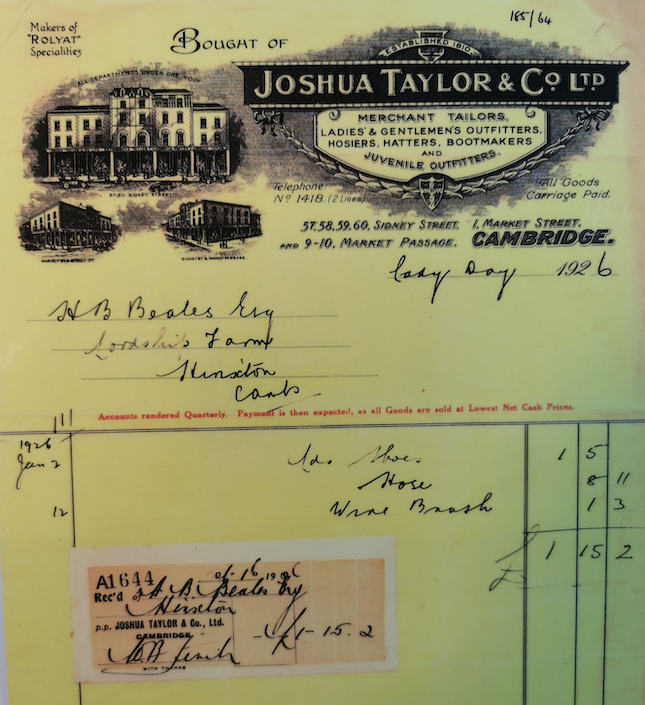 185/64
Makers of
"ROLYAT"
Specialities
BOUGHT OF
ESTABLISHED 1810.
JOSHUA TAYLOR & Co LTD
ALL DEPARTMENTS UNDER ONE ROOF
MERCHANT TAILORS,
LADIES' & GENTLEMEN'S OUTFITTERS,
HOSIERS, HATTERS, BOOTMAKERS
AND
JUVENILE OUTFITTERS.
Telephone
No 1418. (2 Lines)
All Goods
Carriage Paid.
57, 58, 59, 60, SIDNEY STREET, 1, MARKET STREET,
AND 9-10, MARKET PASSAGE, CAMBRIDGE.
Lady Day 1926
H B Beales Esq
Lordship Farm
Hinxton
Cambs
Accounts rendered Quarterly. Payment is then expected, as all Goods are sold at Lowest Net Cash Prices.
1926
Jan 2 Shoes 1 5
Hose 8 11
12 Wire Brush 1 3
£ 1 15 2
A1644 16 1926
Rec'd of H. B. Beales Esq
Hinxton
p.p. JOSHUA TAYLOR & Co., Ltd.
CAMBRIDGE. £1-15-2
WITH THANKS